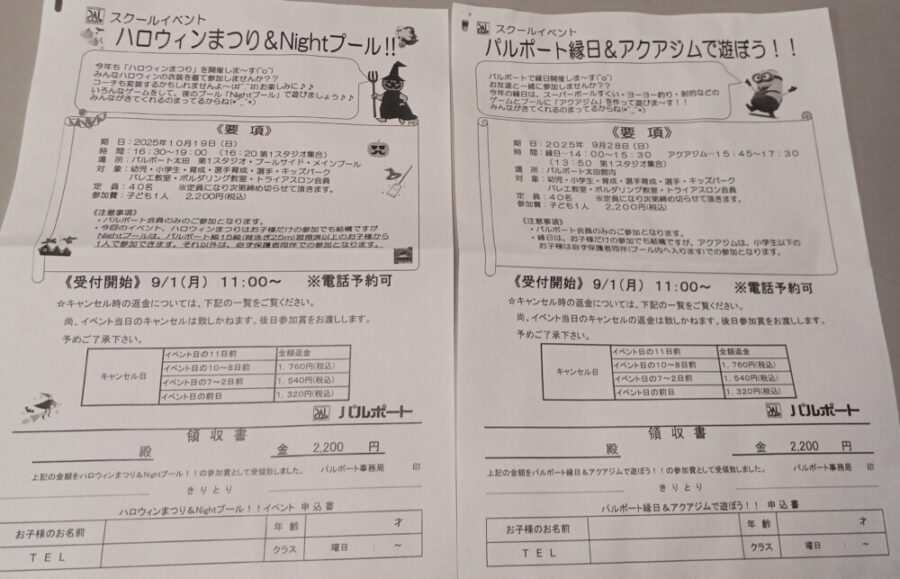 スクールイベント
ハロウィンまつり&Nightプール!!
今年も「ハロウィンまつり」を開催しま~す(^o^)
みんなハロウィンの衣装を着て参加しませんか??
コーチも変装するかもしれませんよ~(#^.^#)お楽しみに♪♪
いろんなゲームをして、夜のプール「Nightプール」で遊びましょう♪♪
みんながきてくれるのまってるからね(*^_^*)
《要 項》
期 日:2025年10月19日(日)
時 間:16:30~19:00 (16:20 第1スタジオ集合)
場 所:パルポート太田 第1スタジオ・プールサイド・メインプール
対 象:幼児・小学生・育成・選手育成・選手・キッズパーク
バレエ教室・ボルダリング教室・トライアスロン会員
定 員:40名 ※定員になり次第締め切らせて頂きます。
参加費:子ども1人 2,200円(税込)
《注意事項》
・パルポート会員のみのご参加となります。
・今回のイベント、ハロウィンまつりはお子様だけの参加でも結構ですが
Nightプールは、パルポート級15級(背泳ぎ25m)習得済以上のお子様から
1人で参加できます。それ以外は、必ず保護者同伴での参加となります。
《受付開始》9/1(月) 11:00~ ※電話予約可
☆キャンセル時の返金については、下記の一覧をご覧ください。
尚、イベント当日のキャンセルは致しかねます。後日参加賞をお渡しします。
予めご了承下さい。
キャンセル日
イベント日の11日前 全額返金
イベント日の10~8日前 1,760円(税込)
イベント日の7~2日前 1,540円(税込)
イベント日の前日 1,320円(税込)
PAL パルポート
領 収 書
殿 金 2,200 円
上記の金額をハロウィンまつり&Nightプール!!の参加費として受領致しました。 パルポート事務局 印
きりとり
ハロウィンまつり&Nightプール!!イベント 申込書
お子様のお名前 年 齢 才
TEL クラス 曜日 : ~
スクールイベント
パルポート縁日&アクアジムで遊ぼう!!
パルポートで縁日開催しま~す(^o^)
お友達と一緒に参加しませんか??
今年の縁日は、スーパーボールすくい・ヨーヨー釣り・射的などの
ゲームとプールに「アクアジム」を作って遊びま~す!!
みんながきてくれるのまってるからね(*^_^*)
《要 項》
期 日:2025年 9月28日(日)
時 間:縁日…14:00~15:30 アクアジム…15:45~17:30
(13:50 第1スタジオ集合)
場 所:パルポート太田館内
対 象:幼児・小学生・育成・選手育成・選手・キッズパーク
バレエ教室・ボルダリング教室・トライアスロン会員
定 員:40名 ※定員になり次第締め切らせて頂きます。
参加費:子ども1人 2,200円(税込)
《注意事項》
・パルポート会員のみのご参加となります。
・縁日は、お子様だけの参加でも結構ですが、アクアジムは、小学生以下の
お子様は必ず保護者同伴(プール内へ入ります)での参加となります。
《受付開始》9/1(月) 11:00~ ※電話予約可
☆キャンセル時の返金については、下記の一覧をご覧ください。
尚、イベント当日のキャンセルの返金は致しかねます。後日参加賞をお渡しします。
予めご了承下さい。
キャンセル日
イベント日の11日前 全額返金
イベント日の10~8日前 1,760円(税込)
イベント日の7~2日前 1,540円(税込)
イベント日の前日 1,320円(税込)
PAL パルポート
領 収 書
殿 金 2,200 円
上記の金額をパルポート縁日&アクアジムで遊ぼう!!の参加費として受領致しました。 パルポート事務局 印
きりとり
パルポート縁日&アクアジムで遊ぼう!! 申込書
お子様のお名前 年 齢 才
TEL クラス 曜日 : ~